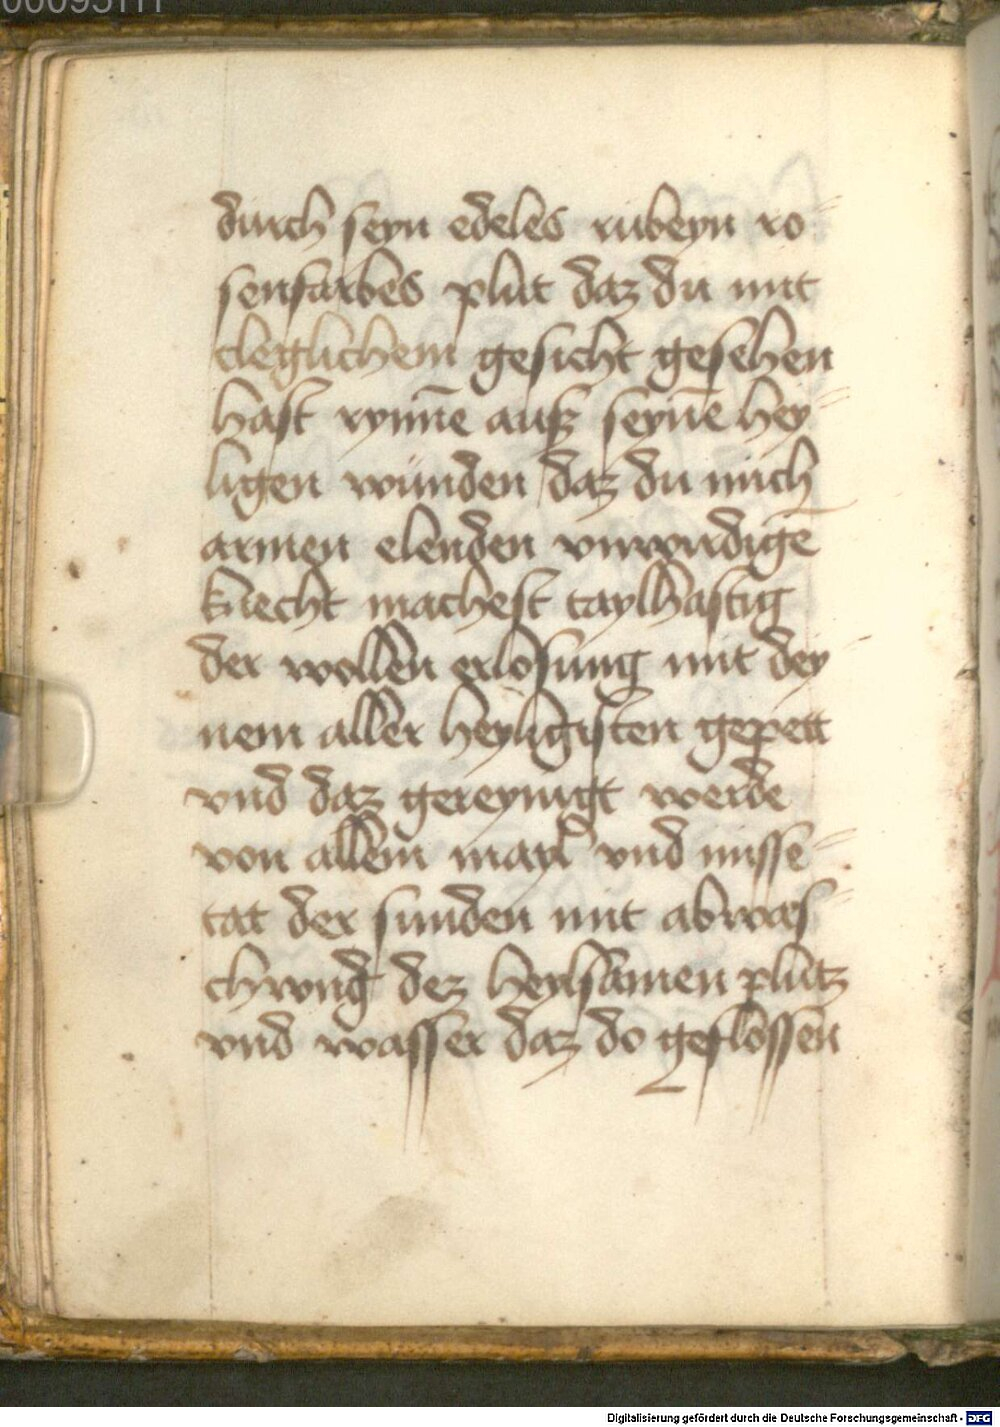 00095111
durch seyn edeles rubeyn ro⸗
senfarbes plut daz du mit
cleglichem gesicht gesehen
hast rynnē auß seynē hey⸗
ligen wunden daz du mich
armen elenden vnwirdigē
knecht machest taylhaftig
der vollen erlosung mit dey⸗
nem aller heyligisten gepett
vnd daz gereynigt werde
von allem mayl vnd misse⸗
tat der sunden mit abwas⸗
chvng dez heylsamen plutz
vnd wasser daz do geflossen
Digitalisierung gefördert durch die Deutsche Forschungsgemeinschaft - DFG